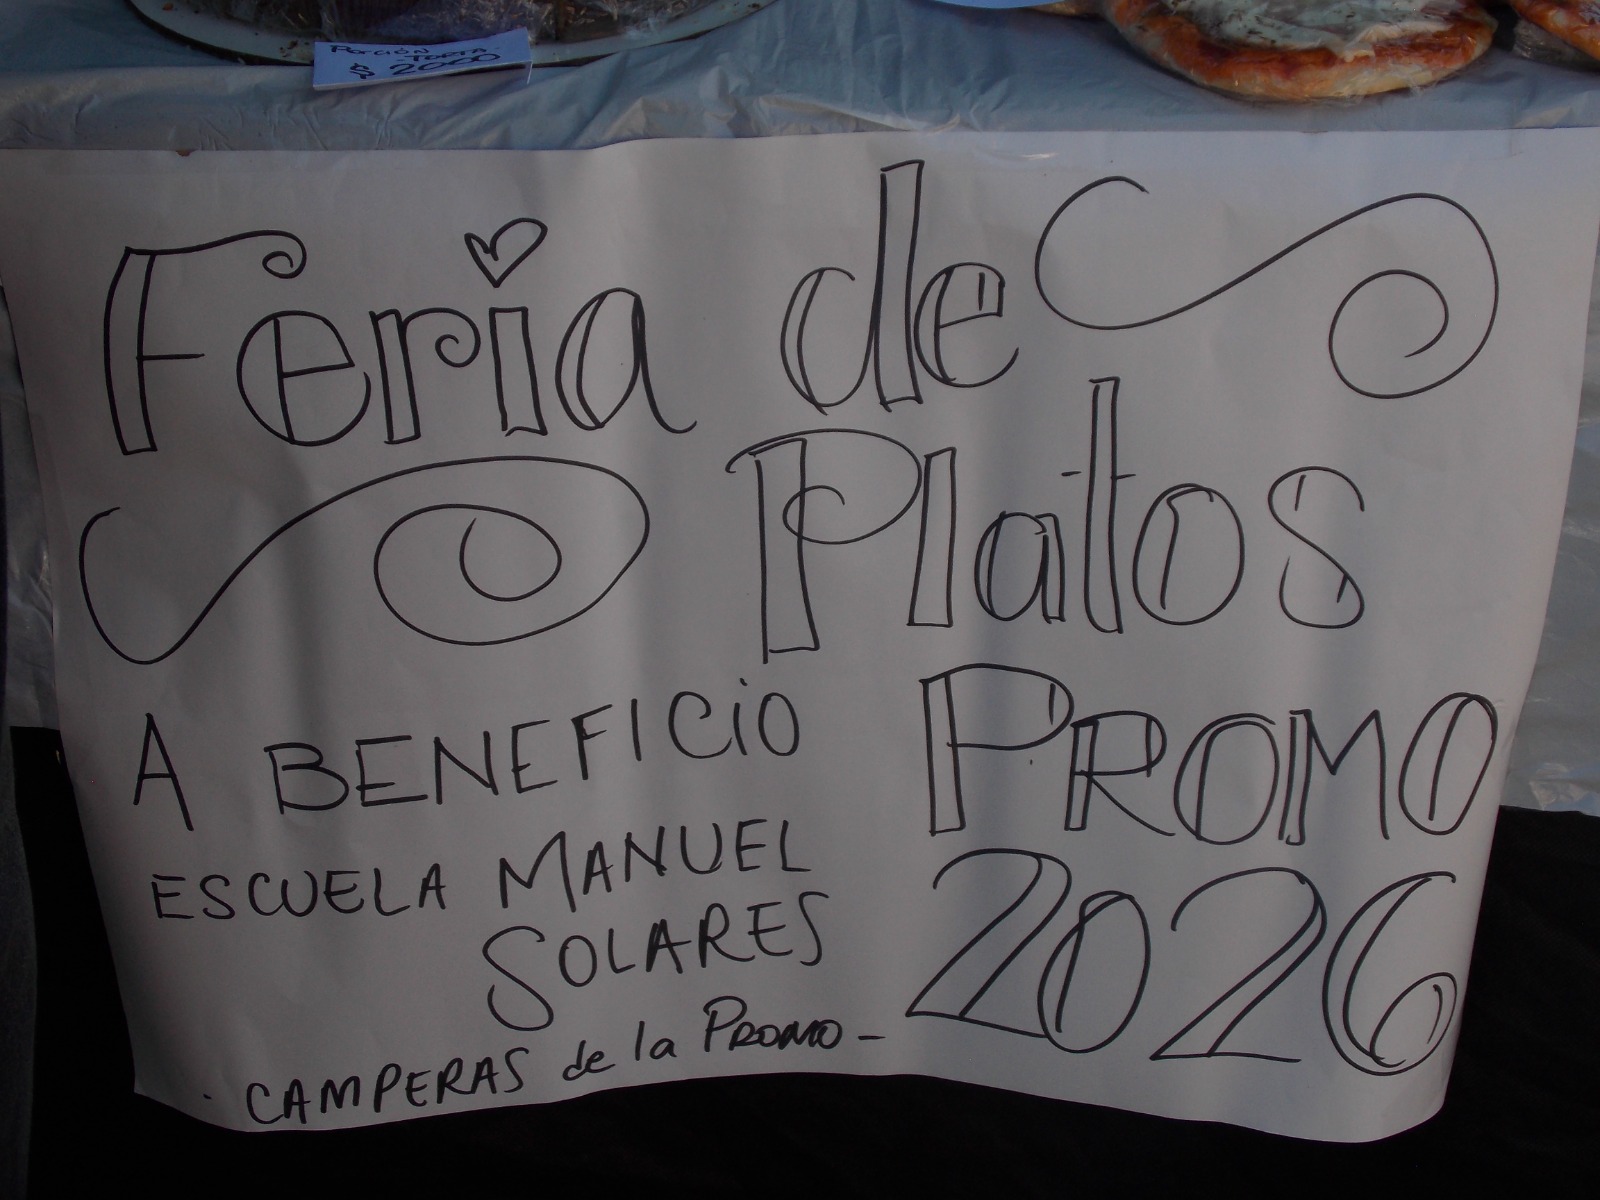 Porción
Torta
$ 2000
Feria de
Platos
A BENEFICIO
ESCUELA MANUEL
SOLARES
CAMPERAS de la PROMO -
PROMO
2026